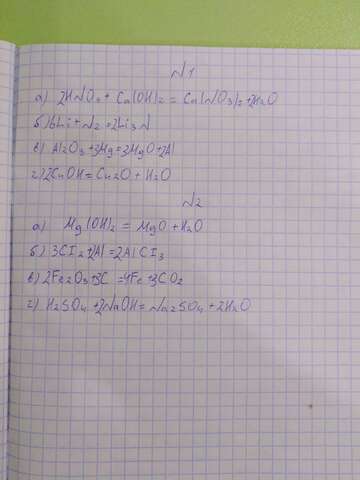 N1
а) 2HNO3 + Ca(OH)2 = Ca(NO3)2+2H2O
б) 6Li + N2 = 2Li3N
в) Al2O3+3Mg=3MgO+2Al
г) 2CuOH = Cu2O + H2O
N2
а) Mg(OH)2 = MgO + H2O
б) 3Cl2+2Al=2AlCl3
в) 2Fe2O3+3C = 4Fe+3CO2
г) H2SO4 + 2NaOH = Na2SO4 + 2H2O